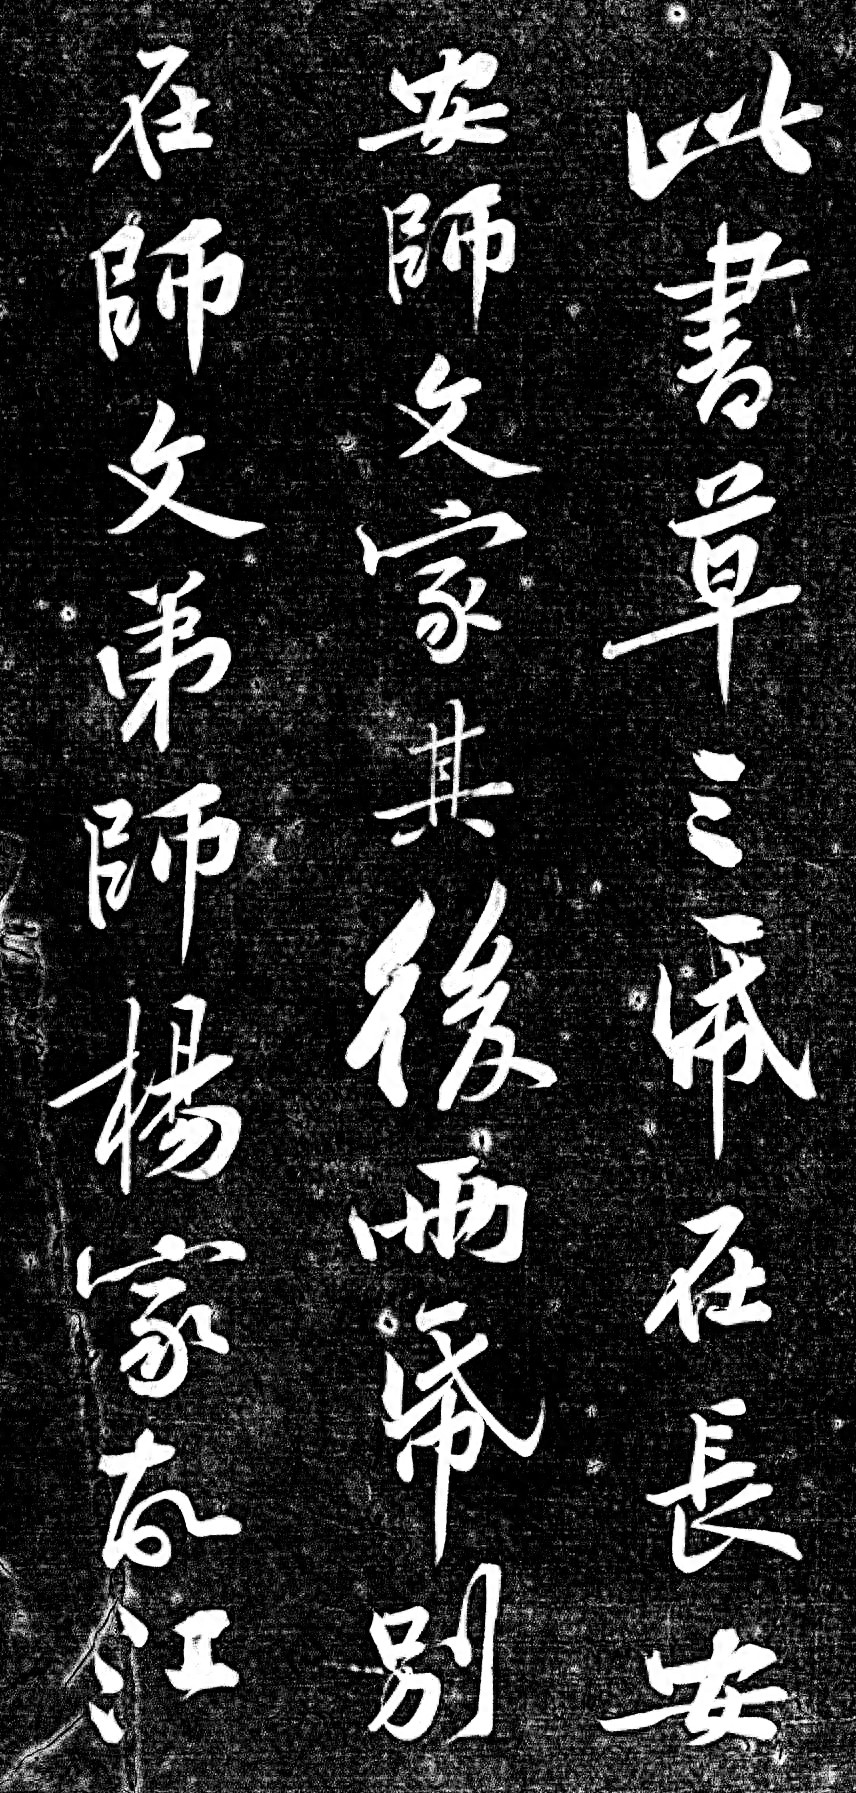 此書草三帋在長安
安師文家其後兩帋別
在師文弟師楊家故江